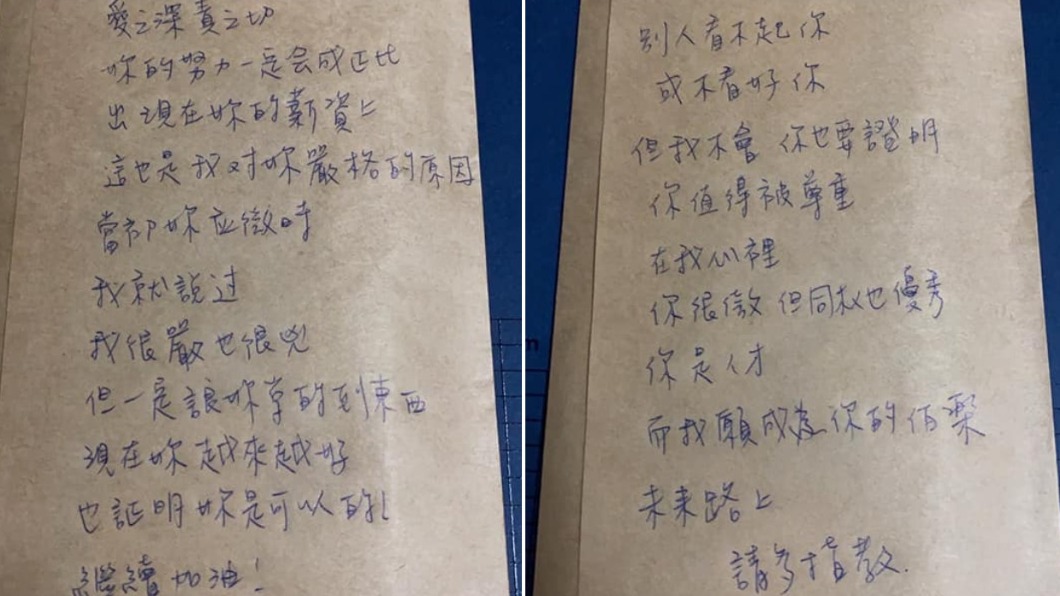 愛之深責之切
妳的努力一定会成正比
出現在妳的薪資上
這也是我对妳嚴格的原因
當初妳应徵時
我就說过
我很嚴也很兇
但一定讓妳学的到東西
現在妳越來越好
也証明妳是可以的!
繼續加油!
別人看不起你
或不看好你
但我不會 你也要證明
你值得被尊重
在我心裡
你很傲 但同私也優秀
你是人才
而我願成為你的伯樂
未来路上
請多指教.